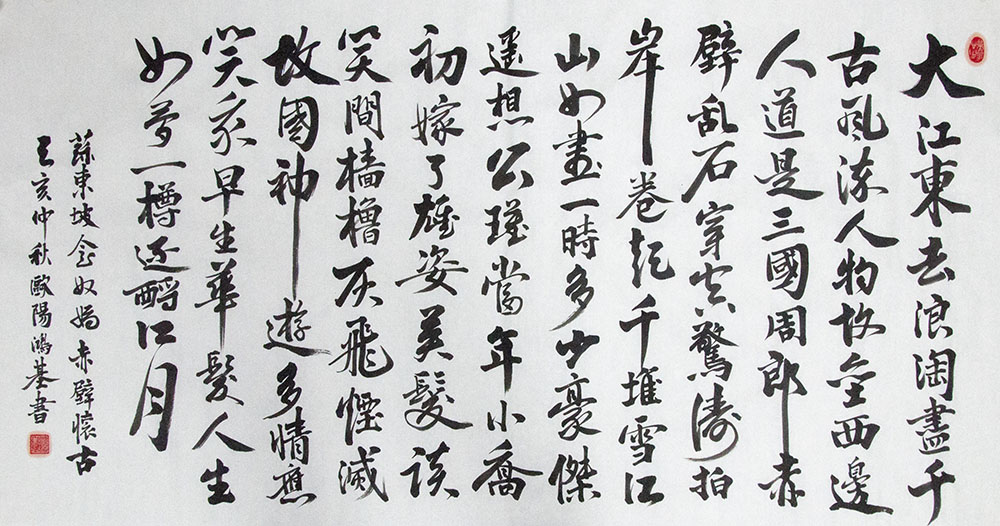 大江東去浪淘盡千
古風流人物故壘西邊
人道是三國周郎赤
壁乱石穿空驚濤拍
岸卷起千堆雪江
山如畫一時多少豪傑
遥想公瑾當年小喬
初嫁了雄姿英髮談
笑間檣櫓灰飛煙滅
故國神遊多情應
笑我早生華髮人生
如夢一樽还酹江月
蘇東坡念奴嬌赤壁懷古
亥仲秋歐陽鴻基書